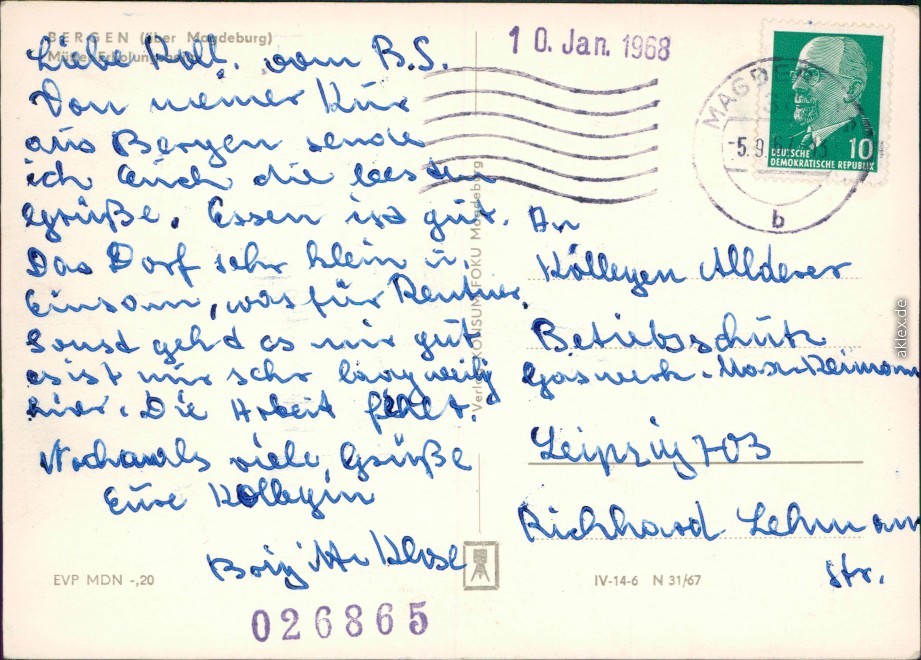 BERGEN (über Magdeburg)
Mütter-Erholungsheim
Liebe Koll. vom B.S.
Von meiner Kur
aus Bergen sende
ich Euch die besten
Grüße. Essen ist gut.
Das Dorf sehr klein u.
Einsam, was für Rentner.
Sonst gehd es mir gut
es ist mir sehr langweilig
hier. Die Arbeit fehlt.
Nochmals viele Grüße
Eure Kollegin
EVP MDN -,20
026865
Verlag KONSUM-FOKU Magdeburg
10. Jan. 1968
MAGDE
-5.9.67
b
DEUTSCHE 10
DEMOKRATISCHE REPUBLIK
An
Kollegen
Betriebsschutz
Gaswerk-Max-Reimann
Leipzig 703
Richhard Lehmann
Str.
IV-14-6 N 31/67
aklex.de